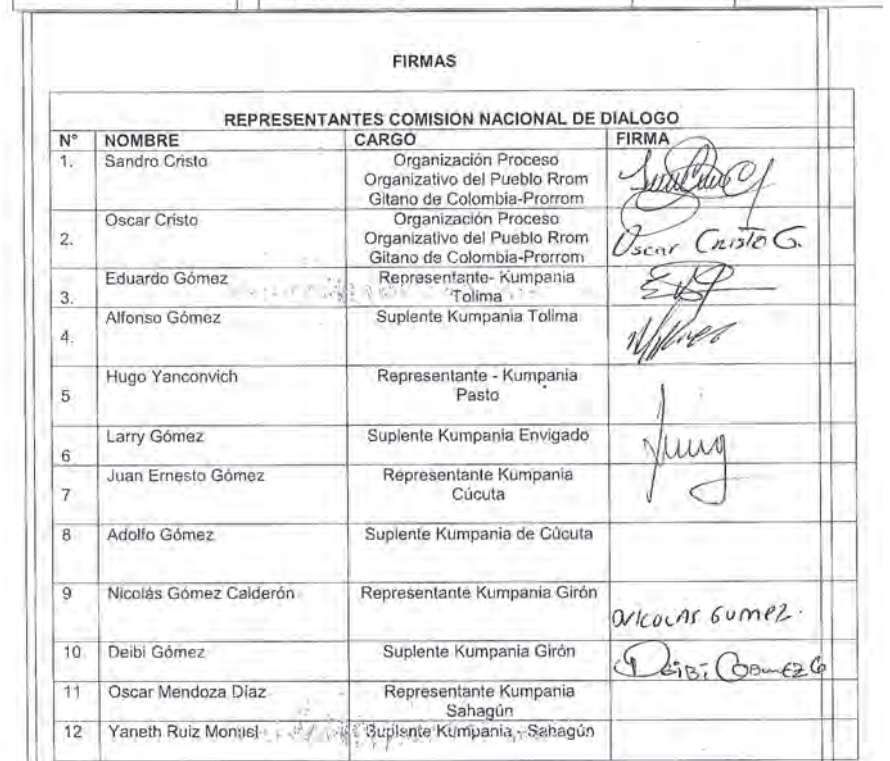 FIRMAS
REPRESENTANTES COMISION NACIONAL DE DIALOGO
N° NOMBRE CARGO FIRMA
1. Sandro Cristo Organización Proceso
Organizativo del Pueblo Rrom
Gitano de Colombia-Prorrom
2. Oscar Cristo Organización Proceso
Organizativo del Pueblo Rrom
Gitano de Colombia-Prorrom
Oscar Cristo G.
3. Eduardo Gómez Representante- Kumpania
Tolima
4. Alfonso Gómez Suplente Kumpania Tolima
5 Hugo Yanconvich Representante - Kumpania
Pasto
6 Larry Gómez Suplente Kumpania Envigado
7 Juan Ernesto Gómez Representante Kumpania
Cúcuta
8 Adolfo Gómez Suplente Kumpania de Cúcuta
9 Nicolás Gómez Calderón Representante Kumpania Girón
NICOLAS GUMEZ.
10 Deibi Gómez Suplente Kumpania Girón
DEIBI GOMEZ G
11 Oscar Mendoza Díaz Representante Kumpania
Sahagún
12 Yaneth Ruiz Suplente Kumpania - Sahagún